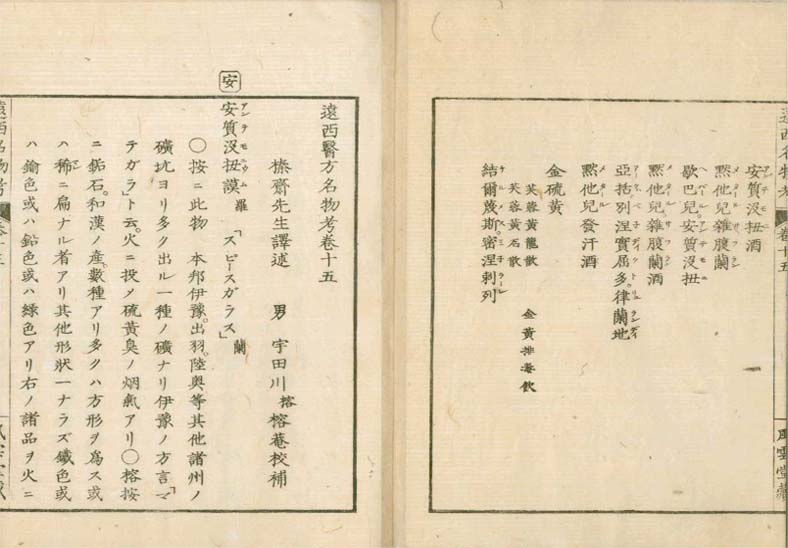 遠西名物考 卷十五 風雲堂藏
安質沒扭酒
黙他兒雜腹蘭
歇巴兒。安質沒扭
黙他兒。雜腹蘭酒
亞括別涅實屈多。律蘭地
黙他兒發汗酒
金硫黄
芙蓉黄龍散 金黄排毒飲
芙蓉黄石散
結爾蔑斯。密涅剌列
遠西醫方名物考卷十五
榛齋先生譯述 男 宇田川榕 榕菴校補
安
安質沒扭謨 羅 「スピースガラス」蘭
〇按ニ此物 本邦伊豫。出羽。陸奥等其他諸州ノ
礦坑ヨリ多ク出ル一種ノ礦ナリ伊豫ノ方言「マ
テガラ」ト云。火ニ投メ硫黄臭ノ烟氣アリ〇榕按
ニ鉐石。和漢ノ産。數種アリ多クハ方形ヲ爲ス或
ハ稀ニ扁ナル者アリ其他形狀一ナラズ鐵色或
ハ鍮色或ハ鉛色或ハ緑色アリ右ノ諸品ヲ火ニ